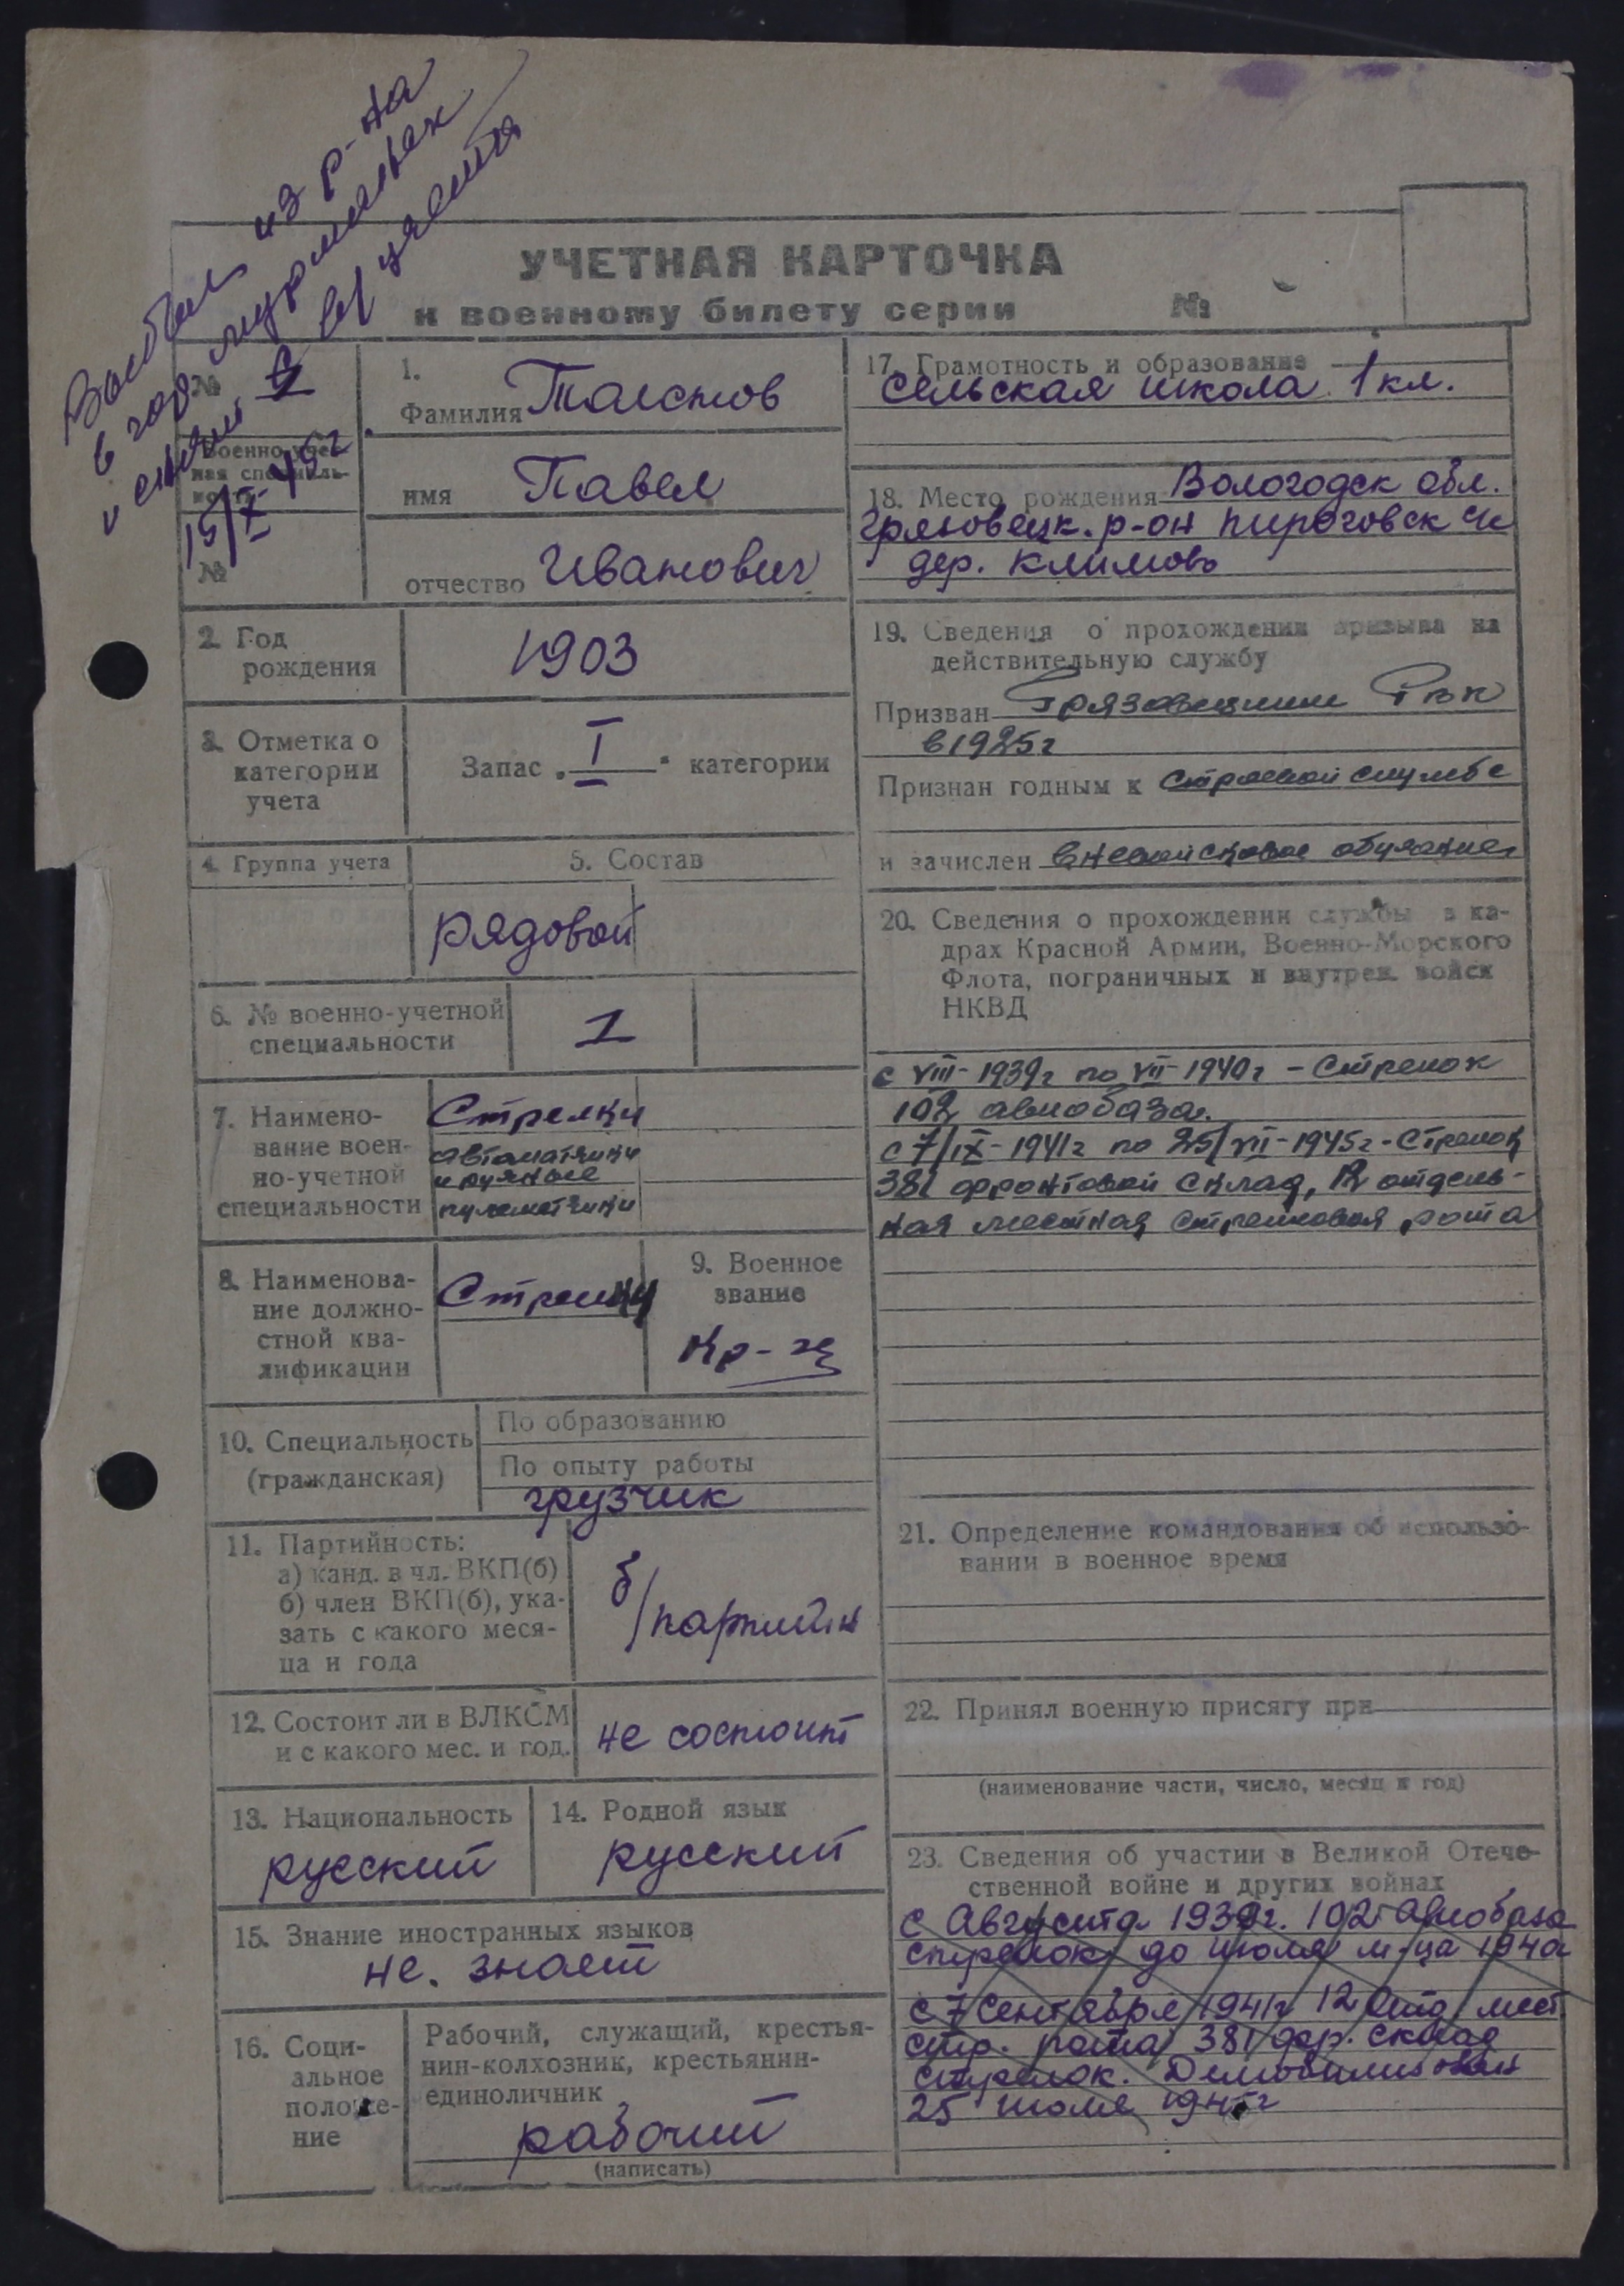 Выбыл из р-на
в гор. Мурманск
и снят с в/учета
15/X-45г
УЧЕТНАЯ КАРТОЧКА
к военному билету серии №
№ 1
Военно-учет-
ная специаль-
ность
№
1.
Фамилия Толстов
имя Павел
отчество Иванович
2. Год
рождения
1903
3. Отметка о
категории
учета
Запас „I“ категории
4. Группа учета
5. Состав
рядовой
6. № военно-учетной
специальности
1
7. Наимено-
вание воен-
но-учетной
специальности
Стрелки
автоматчики
и ручные
пулеметчики
8. Наименова-
ние должно-
стной ква-
лификации
Стрелки
9. Военное
звание
Кр-ц
10. Специальность
(гражданская)
По образованию
По опыту работы
грузчик
11. Партийность:
а) канд. в чл. ВКП(б)
б) член ВКП(б), ука-
зать с какого меся-
ца и года
б/партийн
12. Состоит ли в ВЛКСМ
и с какого мес. и год.
не состоит
13. Национальность
русский
14. Родной язык
русский
15. Знание иностранных языков
не. знает
16. Соци-
альное
положе-
ние
Рабочий, служащий, крестья-
нин-колхозник, крестьянин-
единоличник
рабочий
(написать)
17. Грамотность и образование
сельская школа 1 кл.
18. Место рождения Вологодск обл.
Грязовецк. р-он Пироговск с/с
дер. Климово
19. Сведения о прохождении призыва на
действительную службу
Призван Грязовецким РВК
в 1925г
Признан годным к строевой службе
и зачислен вневойсковое обучение
20. Сведения о прохождении службы в ка-
драх Красной Армии, Военно-Морского
Флота, пограничных и внутрен. войск
НКВД
с VIII-1939г по VII-1940г - Стрелок
102 авиобаза.
с 7/IX-1941г по 25/VII-1945г - Стрелок
381 фронтовой склад, 12 отдель-
ная местная стрелковая рота
21. Определение командования об использо-
вании в военное время
22. Принял военную присягу при
(наименование части, число, месяц и год)
23. Сведения об участии в Великой Отече-
ственной войне и других войнах
с Августа 1939г. 102 авиобаза
стрелок до июля м-ца 1940г
с 7 Сентября 1941г 12 отд мест.
стр. рота 381 фр. склад
стрелок. Демобилизован
25 июля 1945г